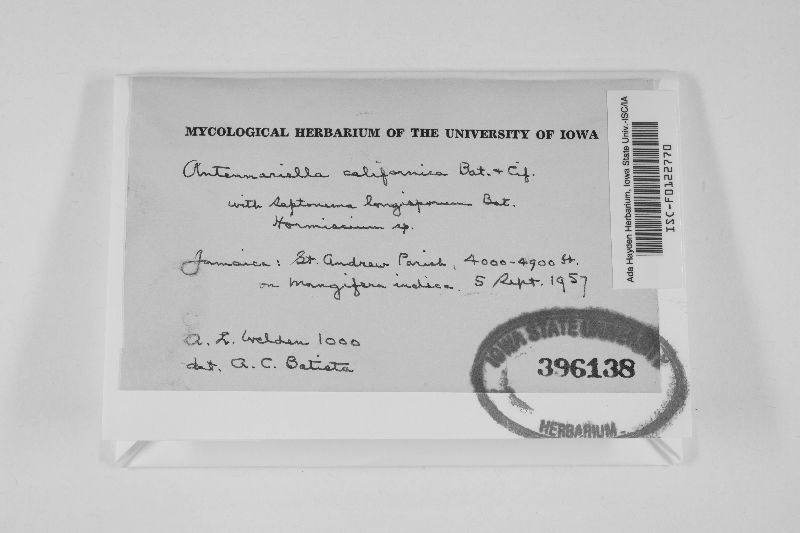 MYCOLOGICAL HERBARIUM OF THE UNIVERSITY OF IOWA
Antennariella californica Bat. & Cif.
with Septonema longisporum Bat.
Hormiscium sp.
Jamaica: St. Andrew Parish, 4000-4900 ft.
on Mangifera indica. 5 Sept. 1957
A. L. Welden 1000
det. A. C. Batista
Ada Hayden Herbarium, Iowa State Univ.-ISC/IA
ISC-F0122770
IOWA STATE UNIVERSITY
396138
HERBARIUM